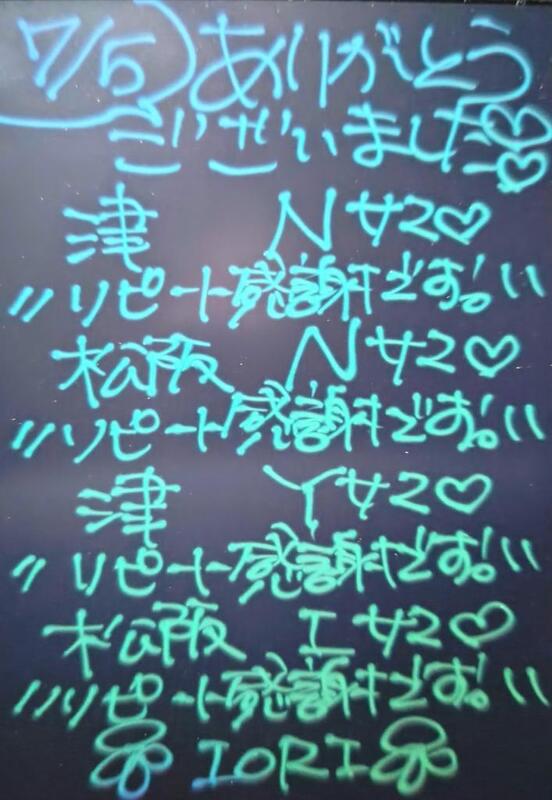 7/5 ありがとう
ございました♡♡
津 Nサマ♡
"リピート感謝です!!"
松阪 Nサマ♡
"リピート感謝です!!"
津 Yサマ♡
"リピート感謝です!!"
松阪 Iサマ♡
"リピート感謝です!!"
IORI